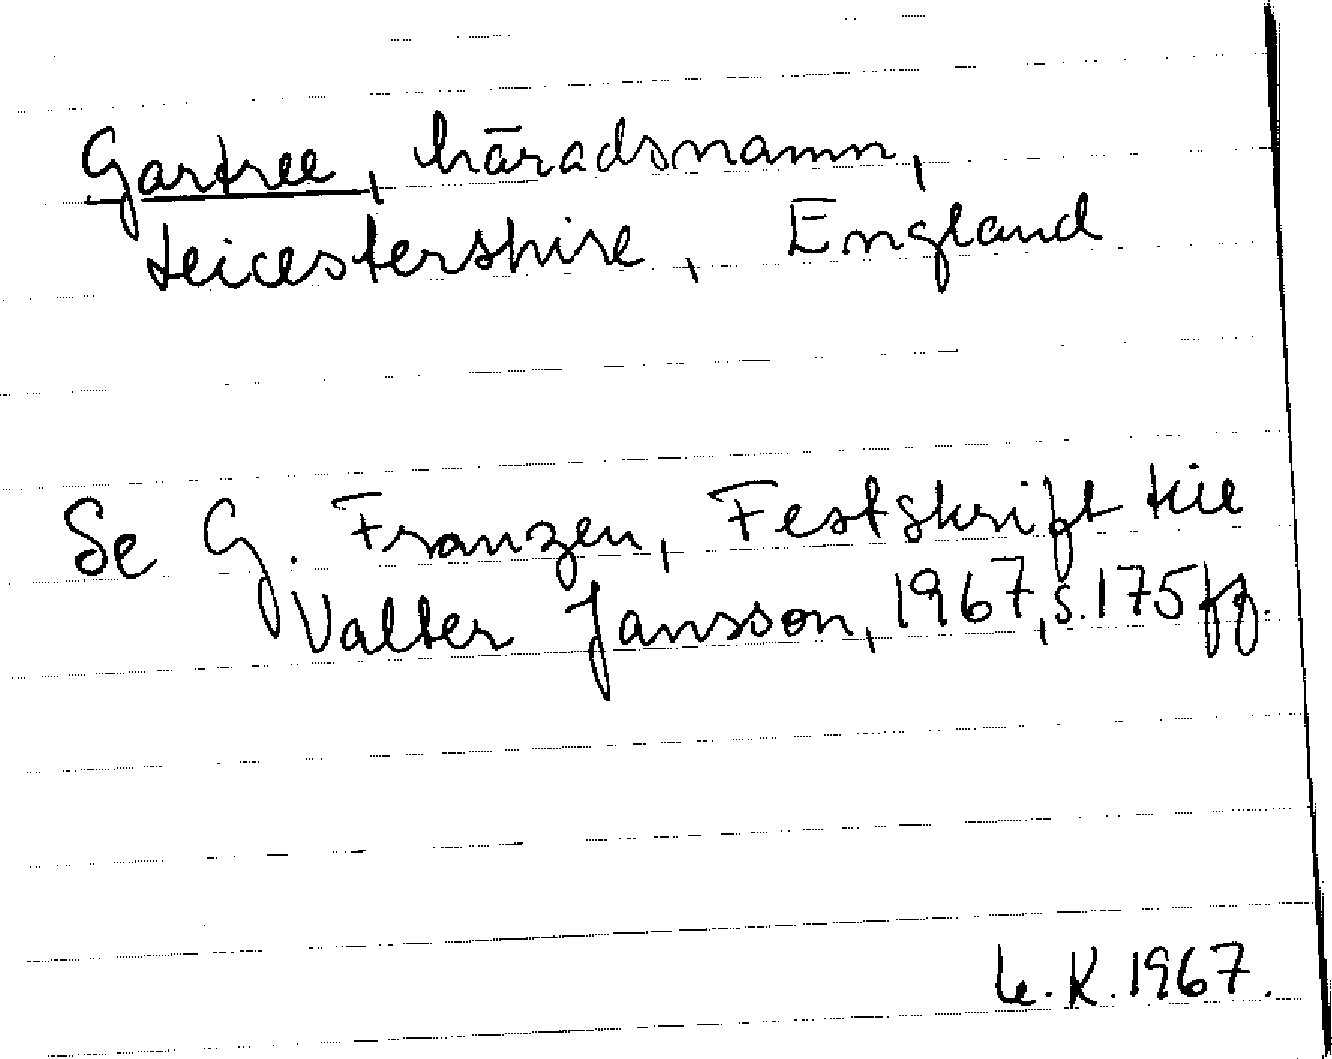 Gartree, häradsnamn,
Leicestershire, England
Se G. Franzen, Festskrift till
Valter Jansson, 1967, s. 175 ff.
K. 1967.